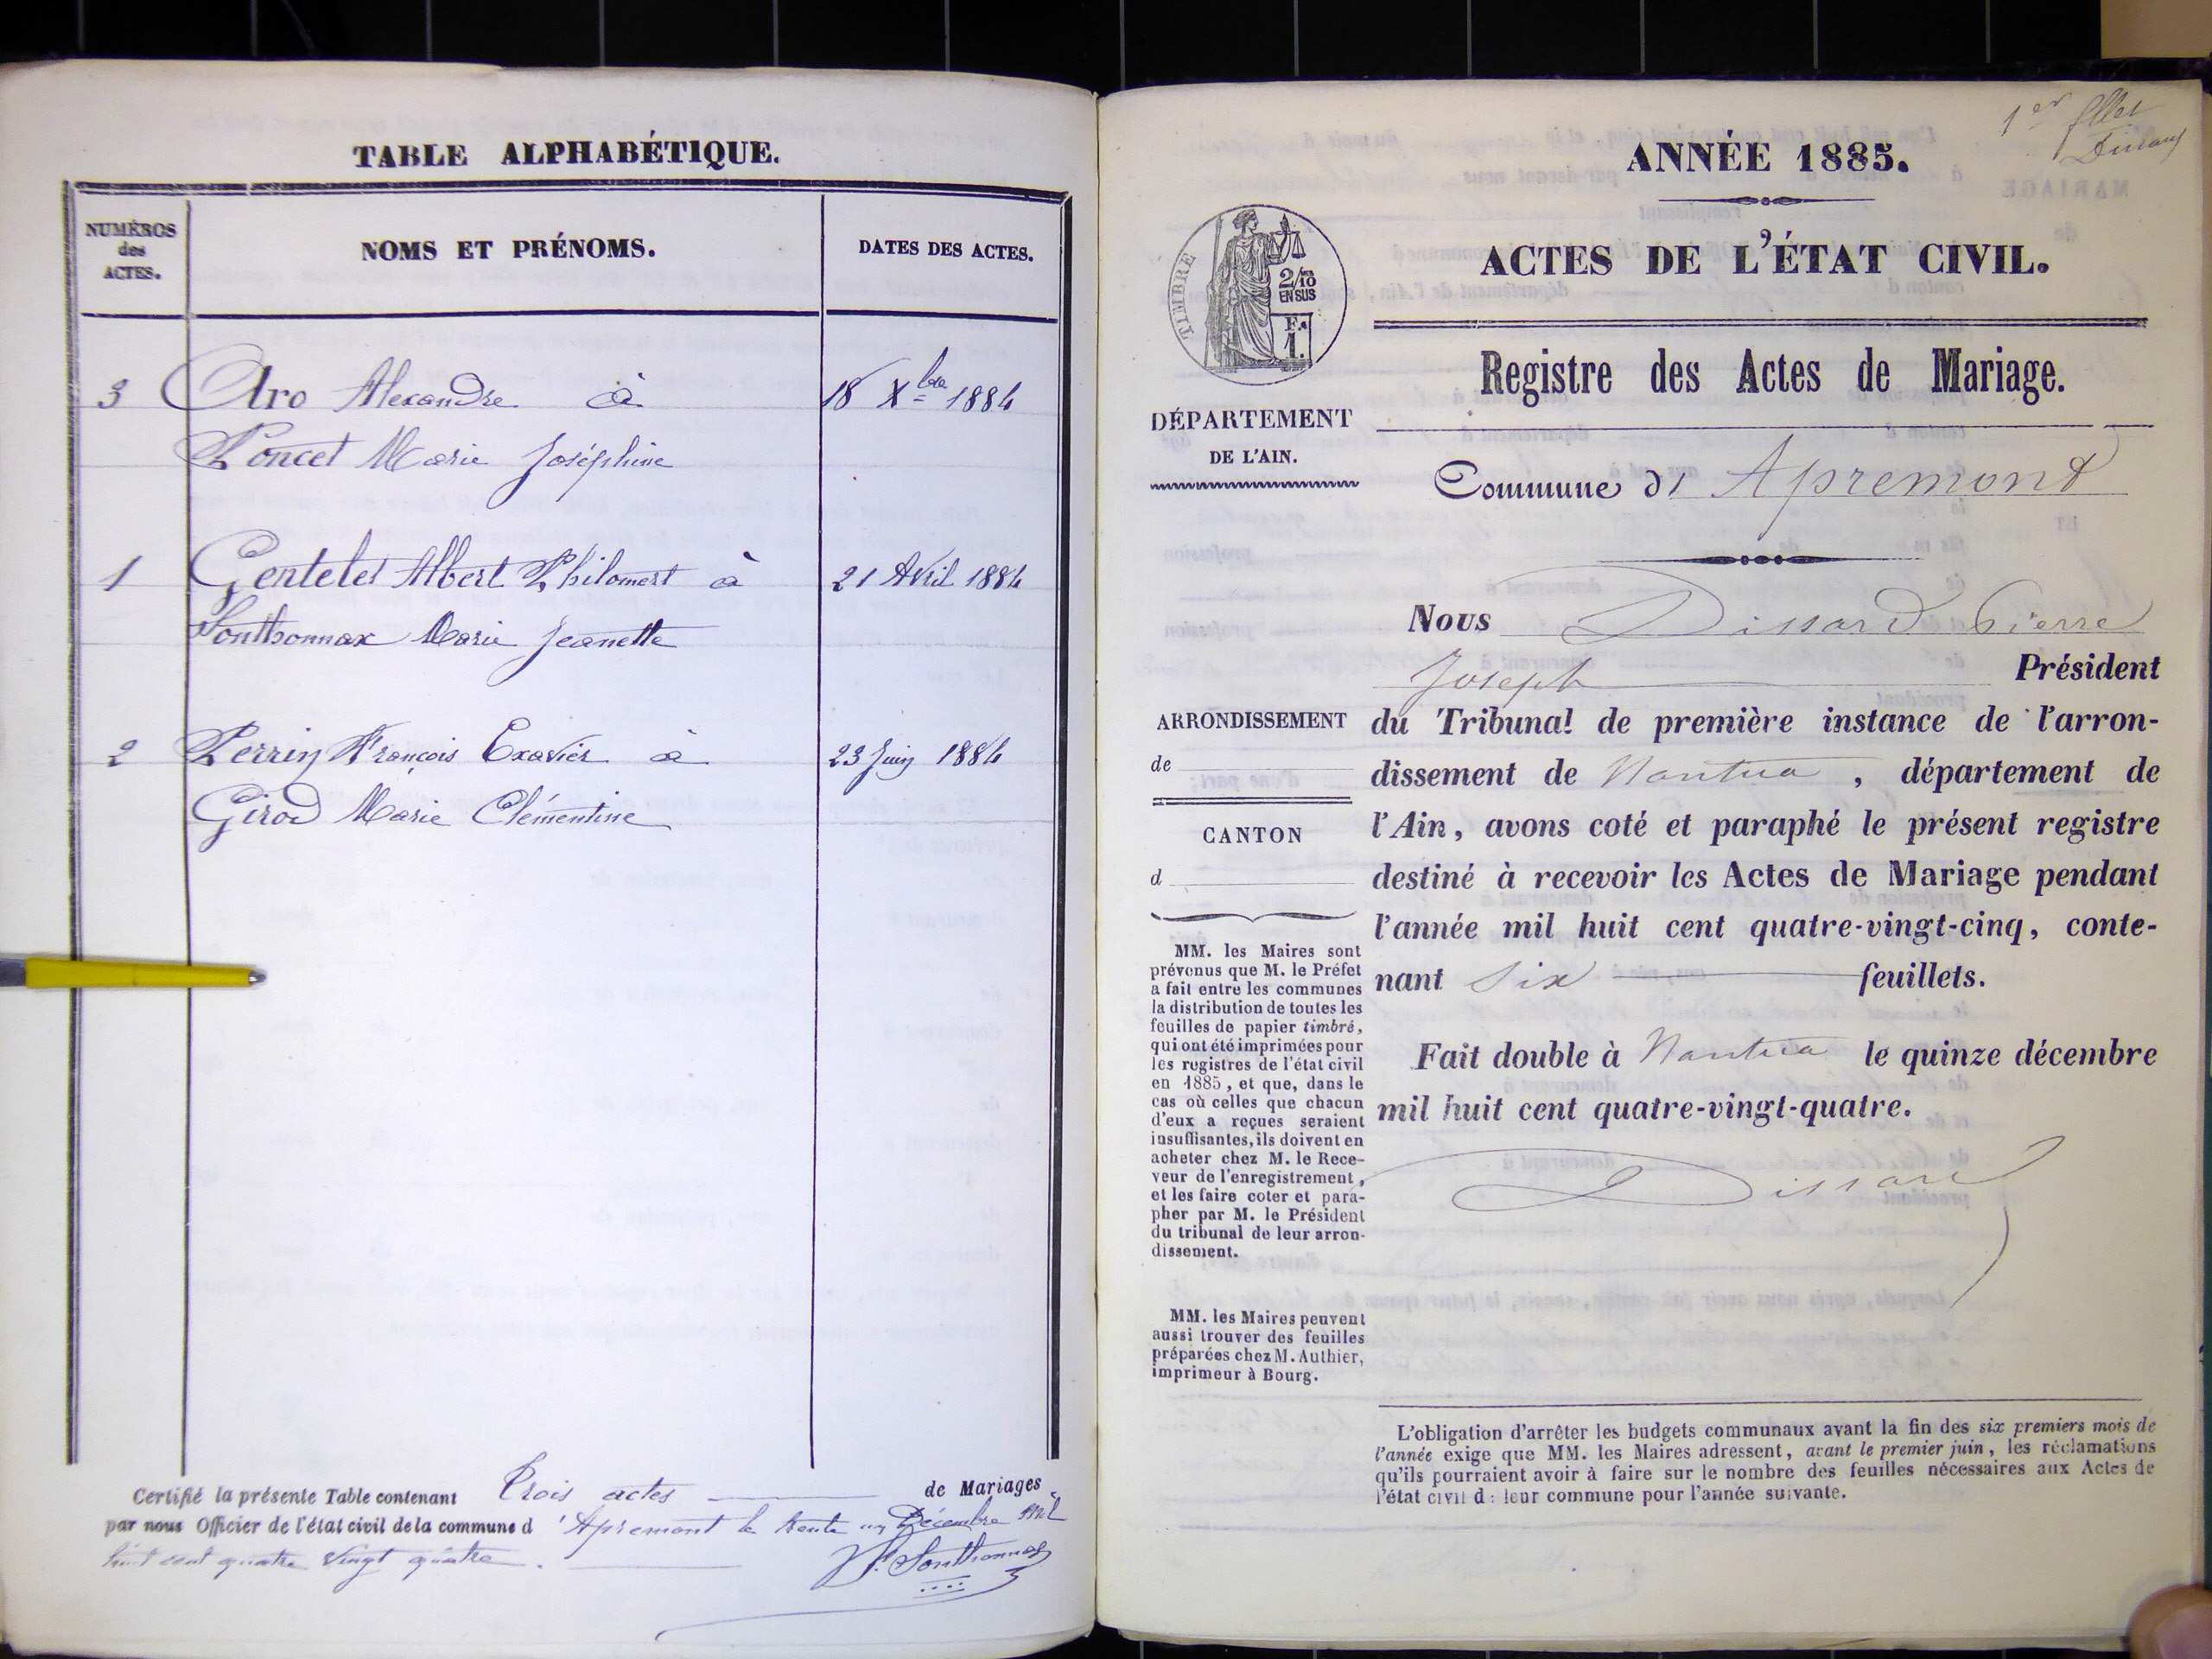 TABLE ALPHABÉTIQUE.
NUMÉROS
des
ACTES.
NOMS ET PRÉNOMS.
DATES DES ACTES.
3 Aro Alexandre à 18 Xbre 1884
Poncet Marie Joséphine
1 Gentelet Albert Philomert à 21 Avril 1884
Sonthonnax Marie Jeanette
2 Perrin François Exavier à 23 Juin 1884
Girod Marie Clémentine
Certifié la présente Table contenant Trois actes de Mariages
par nous Officier de l'état civil de la commune d'Apremont le trente un Décembre Mil
huit cent quatre vingt quatre.
Sonthonnax
1er fllet
Dissard
ANNÉE 1885.
ACTES DE L'ÉTAT CIVIL.
TIMBRE
2/10
EN SUS
Fc.
1.
Registre des Actes de Mariage.
DÉPARTEMENT
DE L'AIN.
Commune d'Apremont
Nous Dissard Pierre
Joseph Président
du Tribunal de première instance de l'arron-
dissement de Nantua, département de
l'Ain, avons coté et paraphé le présent registre
destiné à recevoir les Actes de Mariage pendant
l'année mil huit cent quatre-vingt-cinq, conte-
nant six feuillets.
Fait double à Nantua le quinze décembre
mil huit cent quatre-vingt-quatre.
Dissard
ARRONDISSEMENT
de
CANTON
d
MM. les Maires sont
prévenus que M. le Préfet
a fait entre les communes
la distribution de toutes les
feuilles de papier timbré,
qui ont été imprimées pour
les registres de l'état civil
en 1885, et que, dans le
cas où celles que chacun
d'eux a reçues seraient
insuffisantes, ils doivent en
acheter chez M. le Rece-
veur de l'enregistrement,
et les faire coter et para-
pher par M. le Président
du tribunal de leur arron-
dissement.
MM. les Maires peuvent
aussi trouver des feuilles
préparées chez M. Authier,
imprimeur à Bourg.
L'obligation d'arrêter les budgets communaux avant la fin des six premiers mois de
l'année exige que MM. les Maires adressent, avant le premier juin, les réclamations
qu'ils pourraient avoir à faire sur le nombre des feuilles nécessaires aux Actes de
l'état civil de leur commune pour l'année suivante.